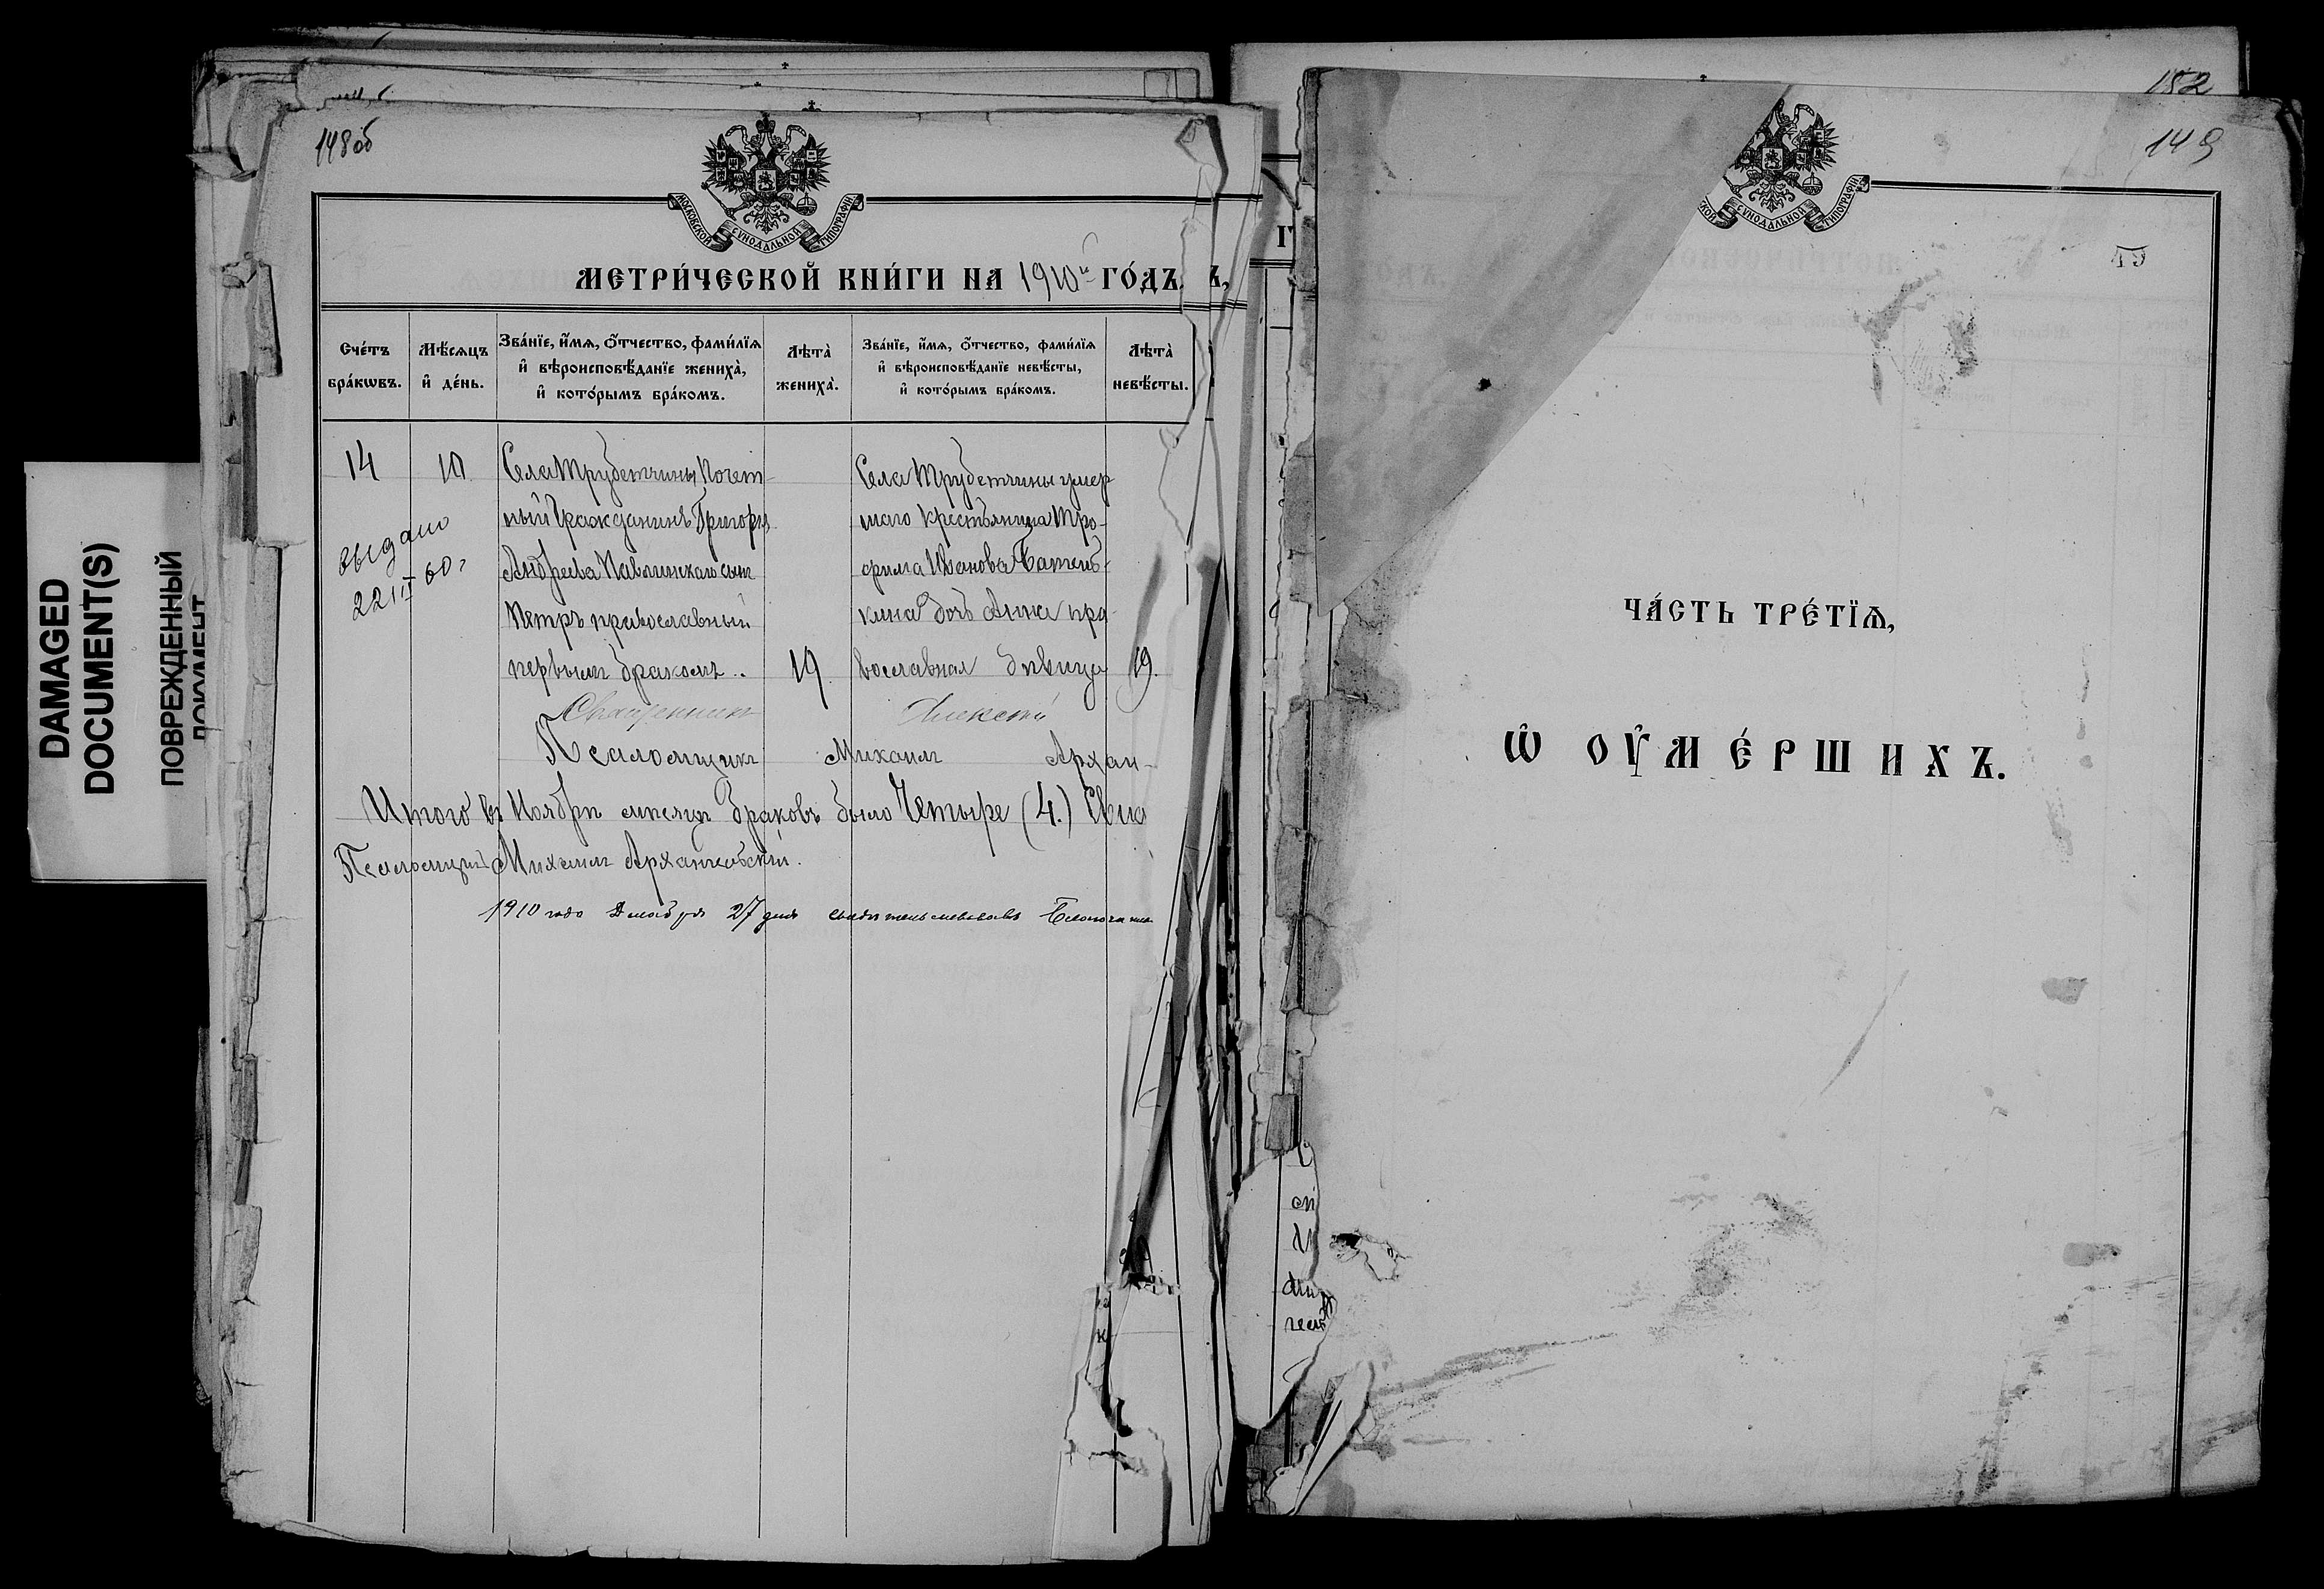 DAMAGED
DOCUMENT(S)
ПОВРЕЖДЕННЫЙ
ДОКУМЕНТ
148об
МОСКОВСКОЙ СУНОДАЛЬНОЙ ТИПОГРАФІИ
МЕТРИ́ЧЕСКОЙ КНИ́ГИ НА 1910й ГО́ДЪ
Сче́тъ бра́кѡвъ.
Мѣ́сѧцъ и҆ де́нь.
Зва́нїе, и҆́мѧ, ѻ҆́тчество, фами́лїѧ и҆ вѣроисповѣ́данїе жениха̀, и҆ кото́рымъ бра́комъ.
Лѣта̀ жениха̀.
Зва́нїе, и҆́мѧ, ѻ҆́тчество, фами́лїѧ и҆ вѣроисповѣ́данїе невѣ́сты, и҆ кото́рымъ бра́комъ.
Лѣта̀ невѣ́сты.
14
выдано
22 II 60 г
Села Трубетчины Почет-
ный Гражданинъ Григорія
Андреева Павлинскаго сынъ
Петръ православный
первымъ бракомъ..
19.
Села Трубетчины умер
шаго крестьянина Тро-
фима Иванова
кина дочь Анна пра-
вославная дѣвица
19.
Священникъ Алексѣй
Псаломщикъ Михаилъ Архан-
Итого въ Ноябрѣ мѣсяцѣ браковъ было Четыре (4.)
Псаломщикъ Михаилъ Архангельскій.
1910 года Декабря 27 дня свидѣтельствовалъ
152
149
КОЙ СУНОДАЛЬНОЙ ТИПОГРАФІИ
ЧА́СТЬ ТРЕ́ТЇѦ,
Ѡ҆ ОУ҆МЕ́РШИХЪ.